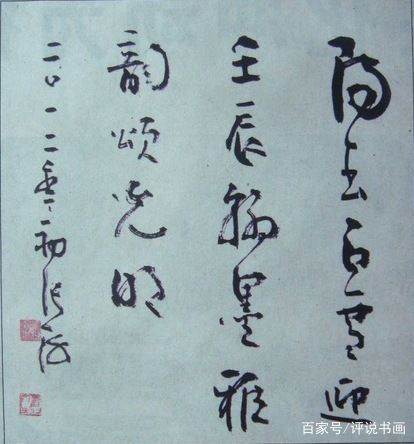 陽春白雪迎
壬辰翰墨雅
韵頌光明
二〇一二年初張海
百家号/评说书画